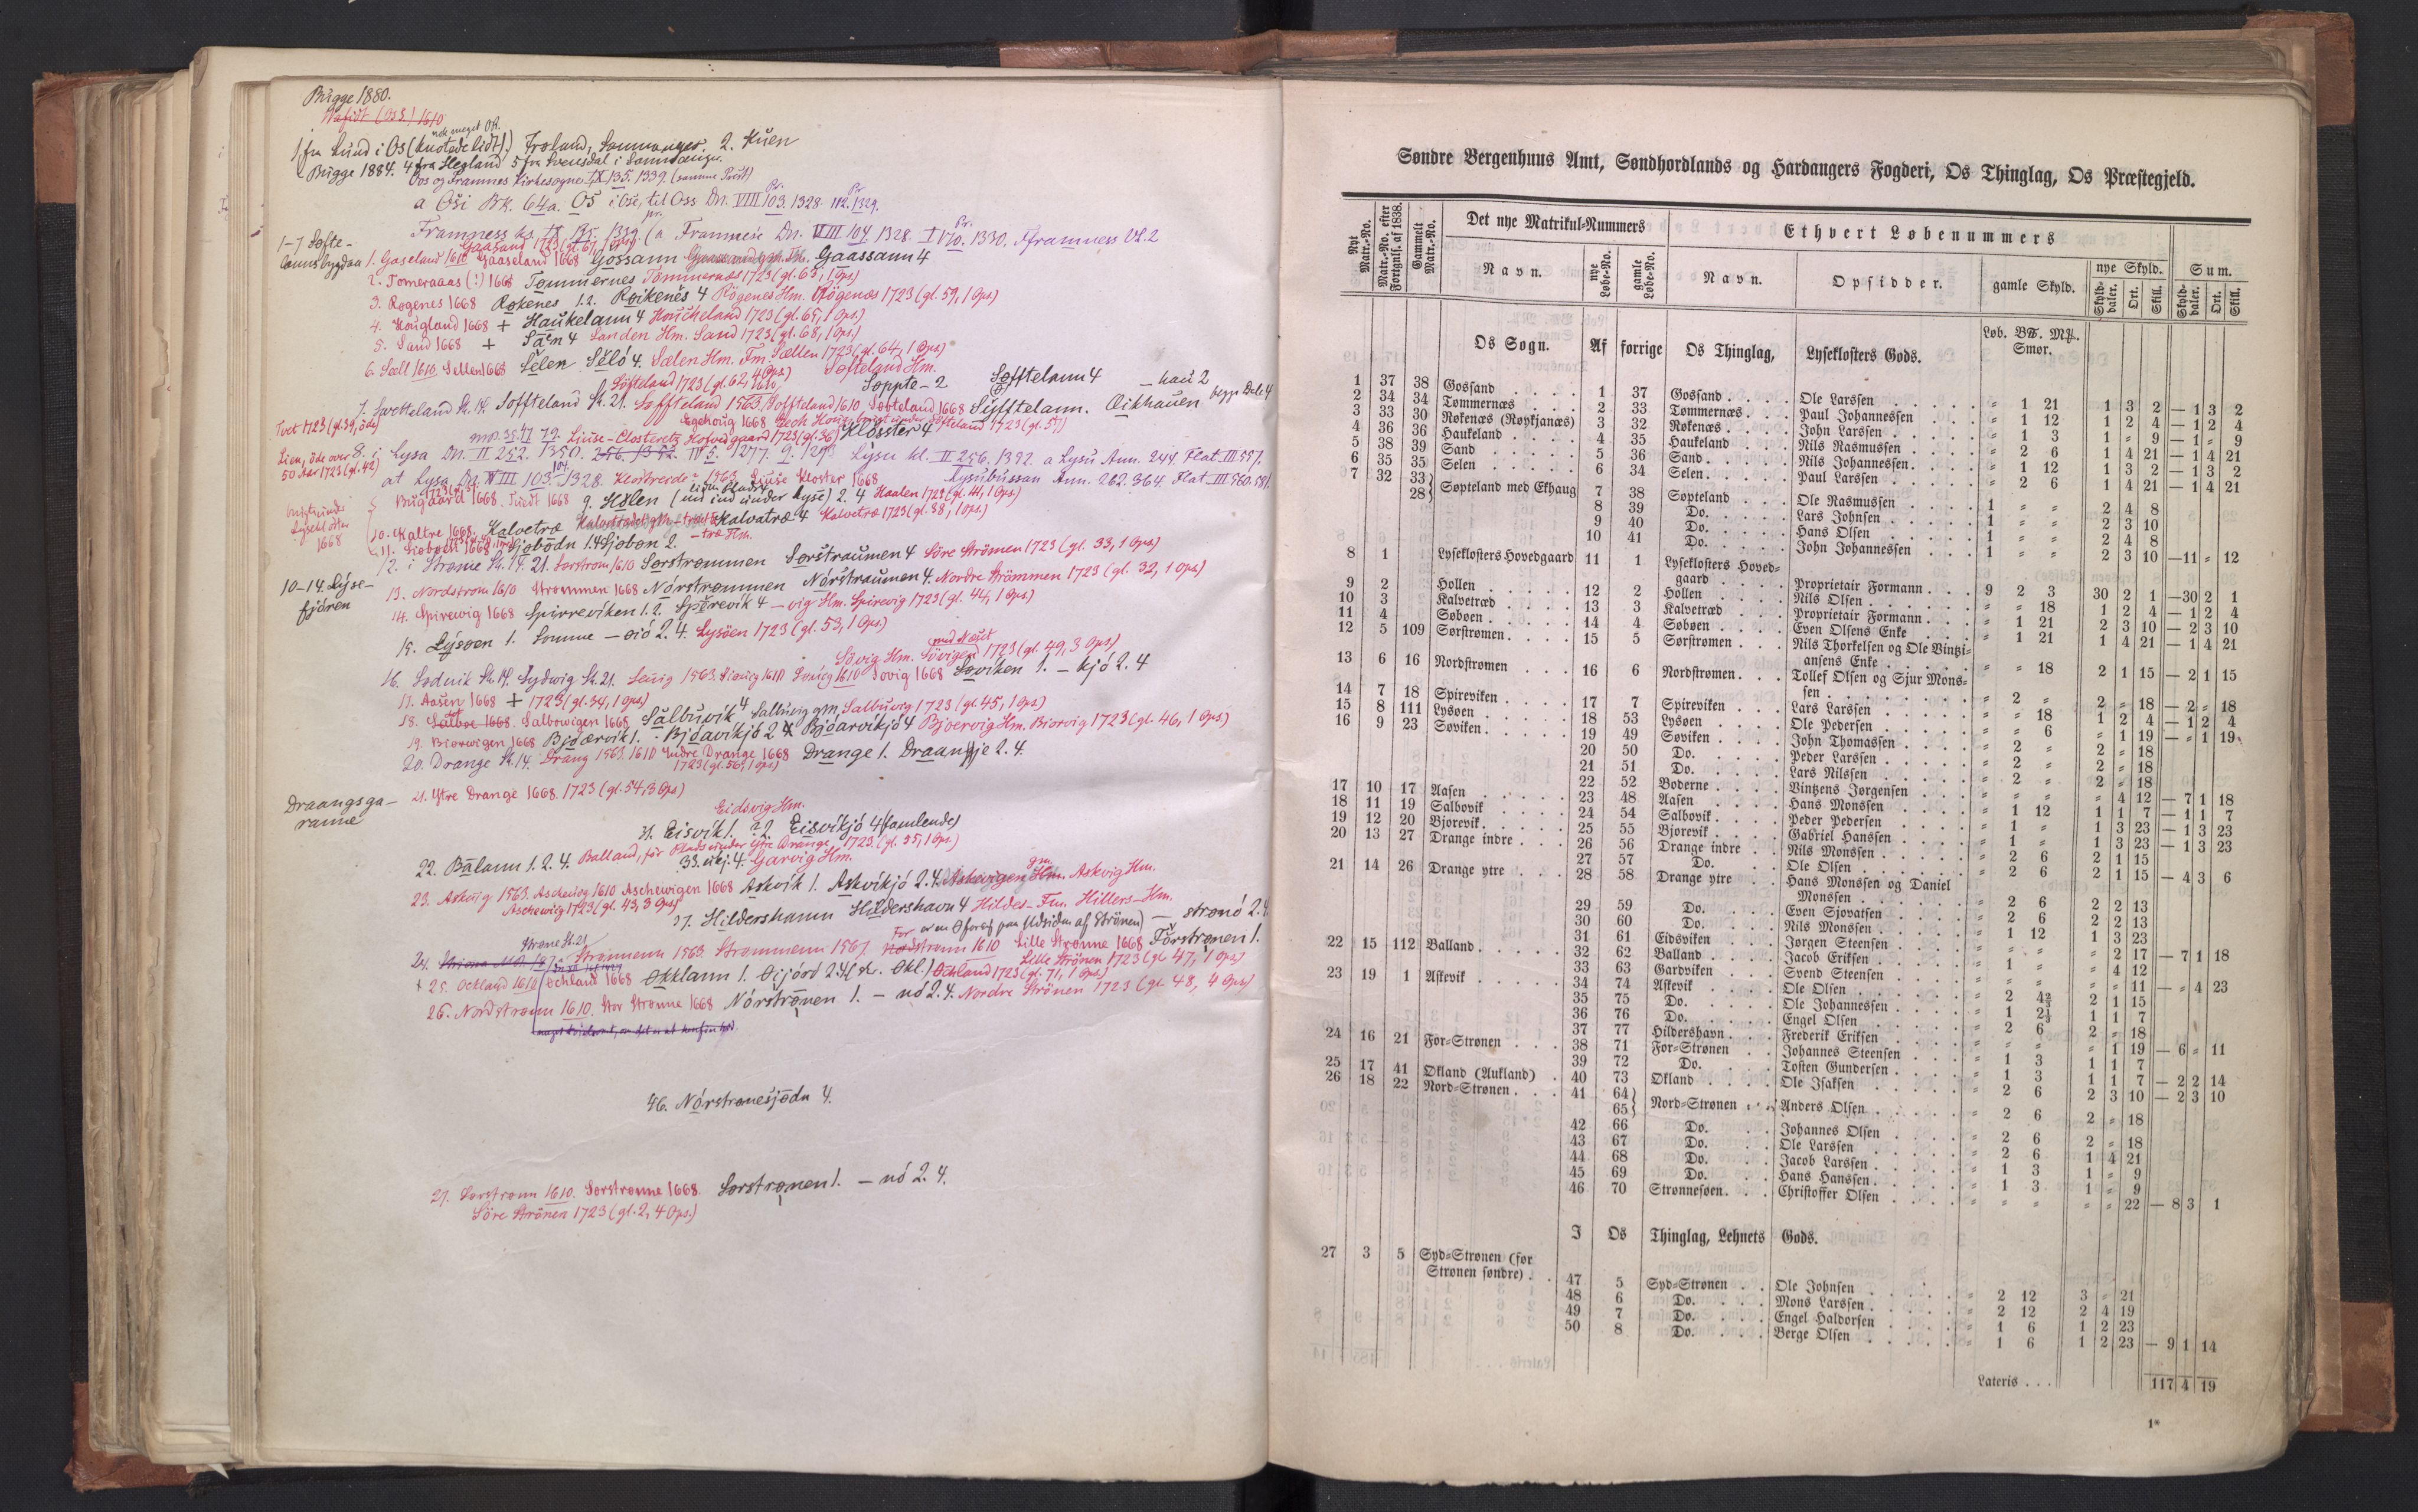 Bugge 1880.
1 fra Lund i Os (knotede lidt!) Troland, Samnanger. 2. Kuen
nok meget OR.
Bugge 1884. 4 fra Hegland 5 fra Svensdal i Samnanger.
Oos og Framnes Kirkesogne IX 135. 1339. (samme Præst)
a Osi BK. 64a. Os i Ose, til Oss Dn. VIII 103. 1328. 112. 1329.
Framness ks. IX 135. 1339. (a Framnese Dn. VIII 104. 1328. I 170. 1330. Fframness Vf. 2
1-7 Søfte-
lannsbygdæn
Gaasand 1723 (gl. 67, 1 Ops)
1. Gaseland 1610 Gaaseland 1668 Gossann Gaassann 4
2. Tomeraaas (!) 1668 Tømmernes Tömmernæs 1723 (gl. 63, 1 Ops)
3. Røgenes 1668 Røkenes 1.2. Røikenes 4 Rögenes Hm. Rögenæs 1723 (gl. 59, 1 Ops)
4. Hougland 1668 + Haukelann 4 Houcheland 1723 (gl. 65, 1 Ops.)
5. Sand 1668 + Sann 4 Sanden Hm. Sand 1723 (gl. 68, 1 Ops.)
6. Sæll 1610 Sellen 1668 Selen Seló 4. Sælen Hm. Fm. Sællen 1723 (gl. 64, 1 Ops)
Søfteland Hm.
Söfteland 1723 (gl. 62, 4 Ops)
Søppte-2 Søfftelann 4 — hau 2
7. Søffteland Sk. 21. Søffteland 1563. Soffteland 1610 Søvteland 1668 Syfftelann. Øikhauen
Tvet 1723 (gl. 39, öde)
Egehoug 1668
Liuse-Closteretz Hofvedgaard 1723 (gl. 36) Klosster 4
8. i Lysa Dn. II 252. 1350. IV 5. 1277. 9. Lysu kl. II 256. 1352. a Lysu Ann. 244. Flat. III 557.
Lien, öde over
50 Aar 1723 (gl. 42)
at Lysa Dn. VIII 103. 104. 1328. 1563. Liuse Kloster 1668 Lysubussan Ann. 262. 364. Flat. III 560.
Bugaard 1668. 9. Hølen 2. 4 Haalen 1723 (gl. 41, 1 Ops)
Lysekl. efter
1668
10. Kaltre 1668. Kalvetræ Kalvatræ 4 Kalvetræ 1723 (gl. 38, 1 Ops)
11. Siøboen 1668 Sjøbødn 1.4 Sjøbøn 2. — træ Hm.
12. i Strøme Sk. 14. 21. Sørstrøm 1610 Sørstrømmen Sørstraumen 4 Söre Strömen 1723 (gl. 33, 1 Ops)
10-14. Lyse-
fjóren
13. Nordstrøm 1610 Strømmen 1668 Nórstrømmen Nórstraumen 4. Nordre Strömmen 1723 (gl. 32, 1 Ops)
14. Spirewig 1668 Spirreviken 1.2. Sperevik 4 — vig Hm. Spirevig 1723 (gl. 44, 1 Ops)
15. Lysøen 1. Somme — øió 2. 4. Lysöen 1723 (gl. 53, 1 Ops)
Sövig Hm. Sövigen 1723 (gl. 49, 3 Ops)
16. Sødvik Sk. 14. Sydwig Sk. 21. Sewig 1563. 1610 Søvig 1668 Søviken 1. — kjó 2. 4
17. Aasen 1668 + 1723 (gl. 34, 1 Ops)
18. Salbowigen 1668 Sålbuvik 4 Salbuvig gm. Salbuvig 1723 (gl. 45, 1 Ops)
19. Biørwigen 1668 Bjóærvik 1. Bjóavikjó 2 Bjóarvikjó 4 Bjoervig Hm. Biorvig 1723 (gl. 46, 1 Ops)
20. Drange Sk. 14. Drang 1563. 1610 Indre Drange 1668 Drange 1. Draangje 2. 4.
1723 (gl. 56, 1 Ops)
Draangsga-
ranne
21. Ytre Drange 1668. 1723 (gl. 54, 3 Ops)
Eidsvig Hm.
31. Eisvik 1. ?2 Eisvikjó 4 (famlende)
22. Bålann 1. 2. 4. Balland, för Plads under ytre Drange 1723. (gl. 35, 1 Ops.)
33. vikj. 4. Garvig Hm.
23. Askuig 1563. Aschewig 1610 Aschewigen 1668 Askvik 1. Askvikjó 2. 4. Askvig Hm.
Aschewiig 1723 (gl. 43, 3 Ops)
37. Hildershamn Hildershavn 4 Hildes-Fm. Hillers-Hm.
Strøne Sk. 21
24. Strømmenn 1563. Strømmenn 1567. Forstrøm 1610 Lille Strønne 1668 Fórstrønen 1. — strønó 2. 4
Lille Strönen 1723 (gl. 47, 1 Ops)
+ 25. Ockland 1610 Ochland 1668 Økklann 1. Ockland 1723 (gl. 71, 1 Ops)
26. Nordstrøm 1610. Stor Strønne 1668 Nórstrønen 1. — nó 2. 4. Nordre Strönen 1723 (gl. 48, 4 Ops)
46. Nórstrønesjødn 4.
27. Sørstrøm 1610. Sørstrønne 1668. Sørstrønen 1. — nó 2. 4.
Söre Strönen 1723 (gl. 2, 4 Ops.)
Søndre Bergenhuus Amt, Søndhordlands og Hardangers Fogderi, Os Thinglag, Os Præstegjeld.
Nyt Matr.-No. | Matr.-No. efter Fortgnls. af 1838. | Gammelt Matr.-No. | Det nye Matrikul-Nummers | Ethvert Løbenummers
Navn. | nye Løbe-No. | gamle Løbe-No. | Navn. | Opsidder. | gamle Skyld. | nye Skyld. | Sum.
Skylddaler. | Ort. | Skill. | Skylddaler. | Ort. | Skill.
Os Sogn. Af forrige Os Thinglag, Lyseklosters Gods. Løb. B℔. M℔. Smør.
1 37 38 Gossand . . . . 1 37 Gossand . . . . Ole Larssen . . . . . " 1 21 1 3 2 — 1 3 2
2 34 34 Tømmernæs . . . 2 33 Tømmernæs . . . Paul Johannessen . . . " 1 12 1 2 4 — 1 2 4
3 33 30 Røkenæs (Røykjanæs) 3 32 Røkenæs . . . . John Larssen . . . . . " 1 3 1 " 9 — 1 " 9
4 36 36 Haukeland . . . 4 35 Haukeland . . . Nils Rasmussen . . . . " 2 6 1 4 21 — 1 4 21
5 38 39 Sand . . . . . 5 36 Sand . . . . . Nils Johannessen . . . " 1 12 1 3 2 — 1 3 2
6 35 35 Selen . . . . . 6 34 Selen . . . . . Paul Larssen . . . . . " 2 6 1 4 21 — 1 4 21
7 32 33 28} Søpteland med Ekhaug 7 38 Søpteland . . . Ole Rasmussen . . . . 1 " " 2 4 8
8 39 Do. . . . . Lars Johnsen . . . . . 1 " " 2 3 10
9 40 Do. . . . . Hans Olsen . . . . . 1 " " 2 4 8
10 41 Do. . . . . John Johannessen . . . 1 " " 2 3 10 — 11 " 12
8 1 Lyseklosters Hovedgaard 11 1 Lyseklosters Hoved-
gaard . . . . Proprietair Formann . . . 9 2 3 30 2 1 — 30 2 1
9 2 Hollen . . . . . 12 2 Hollen . . . . . Nils Olsen . . . . . . " " 18 1 2 4 — 1 2 4
10 3 Kalvetræd . . . 13 3 Kalvetræd . . . Proprietair Formann . . " 1 21 2 3 10 — 2 3 10
11 4 Søbøen . . . . . 14 4 Søbøen . . . . Even Olsens Enke . . . " 1 21 1 4 21 — 1 4 21
12 5 109 Sørstrømen . . . . 15 5 Sørstrømen . . . Nils Thorkelsen og Ole Vintzi-
ansens Enke . . . . . " " 18 2 1 15 — 2 1 15
13 6 16 Nordstrømen . . . 16 6 Nordstrømen . . . Tollef Olsen og Sjur Mons-
sen . . . . . . . . " 2 " 2 " 18 — 2 " 18
14 7 18 Spireviken . . . . 17 7 Spireviken . . . Lars Larssen . . . . . " " 18 1 2 4 — 1 2 4
15 8 111 Lysøen . . . . . 18 53 Lysøen . . . . Ole Pedersen . . . . . " " 6 " 1 19 — " 1 19
16 9 23 Søviken . . . . . 19 49 Søviken . . . . John Thomassen . . . . " 2 " 2 " 18
20 50 Do. . . . . Peder Larssen . . . . . " 2 " 2 " 18
21 51 Do. . . . . Lars Nilssen . . . . . " 2 " 2 " 18
22 52 Boderne . . . . Vintzens Jørgensen . . . " " " " 4 12 — 7 1 18
17 10 17 Aasen . . . . . 23 48 Aasen . . . . Hans Monssen . . . . " 1 12 1 1 7 — 1 1 7
18 11 19 Salbovik . . . . 24 54 Salbovik . . . . Peder Pedersen . . . . " 1 " 1 3 23 — 1 3 23
19 12 20 Bjorevik . . . . . 25 55 Bjorevik . . . . Gabriel Hanssen . . . . " 1 " 1 3 23 — 1 3 23
20 13 27 Drange indre . . . 26 56 Drange indre . . Nils Monssen . . . . . " 2 6 2 1 15
27 57 Do. . . . . Ole Olsen . . . . . . " 2 6 2 1 15 — 4 3 6
21 14 26 Drange ytre . . . 28 58 Drange ytre . . Hans Monssen og Daniel
Monssen . . . . . . " 2 6 2 2 13
29 59 Do. . . . . Even Sjovatsen . . . . " 2 6 2 2 13
30 60 Do. . . . . Nils Monssen . . . . . " 1 12 1 3 23
31 61 Eidsviken . . . Jørgen Steensen . . . . " " " " 2 17 — 7 1 18
22 15 112 Balland . . . . . 32 62 Balland . . . . Jacob Eriksen . . . . . " 1 " " 4 12
33 63 Gardviken . . . Svend Steensen . . . . " " " " " 11 — " 4 23
23 19 1 Askevik . . . . 34 74 Askevik . . . . Ole Olsen . . . . . . " 2 4⅔ 2 1 15
35 75 Do. . . . . Ole Johannessen . . . . " 1 2⅓ 1 1 7
36 76 Do. . . . . Engel Olsen . . . . . " 2 6 2 " 18
37 77 Hildershavn . . . Frederik Eriksen . . . . " " " " 1 19 — 6 " 11
24 16 21 For-Strønen . . . 38 71 For-Strønen . . Johannes Steensen . . . " 1 3 1 1 7
39 72 Do. . . . . Tosten Gundersen . . . . " 1 3 1 1 7 — 2 2 14
25 17 41 Økland (Aukland) . 40 73 Økland . . . . Ole Isaksen . . . . . " 2 6 2 3 10 — 2 3 10
26 18 22 Nord-Strønen . . . 41 64 65} Nord-Strønen . . Anders Olsen . . . . . " 2 6 2 " 18
42 66 Do. . . . . Johannes Olsen . . . . " 2 6 2 " 18
43 67 Do. . . . . Ole Larssen . . . . . " 2 6 1 4 21
44 68 Do. . . . . Jacob Larssen . . . . . " 1 3 1 " 9
45 69 Do. . . . . Hans Hanssen . . . . . " 1 3 1 " 9
46 70 Strønnesøen . . . Christoffer Olsen . . . . " " " " " 22 — 8 3 1
I Os Thinglag, Lehnets Gods.
27 3 5 Syd-Strønen (før
Strønen søndre) . . 47 5 Syd-Strønen . . Ole Johnsen . . . . . " 2 12 3 " 21
48 6 Do. . . . . Mons Larssen . . . . . " 2 12 2 4 19
49 7 Do. . . . . Engel Haldorsen . . . . " 1 6 1 2 23
50 8 Do. . . . . Berge Olsen . . . . . " 1 6 1 2 23 — 9 1 14
Lateris . . . 117 4 19
1*